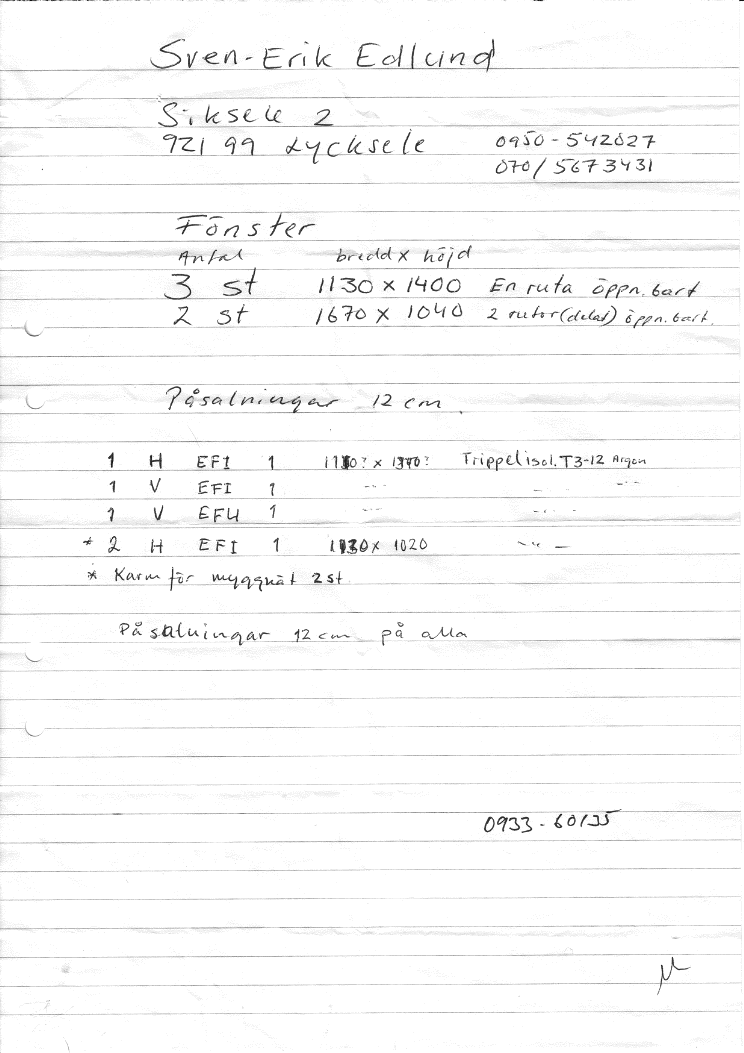 Sven-Erik Edlund
Siksele 2
921 99 Lycksele 0950-542027
070/5673431
Fönster
Antal bredd x höjd
3 st 1130 x 1400 En ruta öppn.bart
2 st 1670 x 1040 2 rutor (delat) öppn.bart.
Påsalningar 12 cm.
1 H EFI 1 Trippelisol. T3-12 Argon
1 V EFI 1 -"- -"- -"-
1 V EFU 1 -"- -"-
* 2 H EFI 1 x 1020 -"-
* Karm för myggnät 2 st
Påsalningar 12 cm på alla
0933-60135